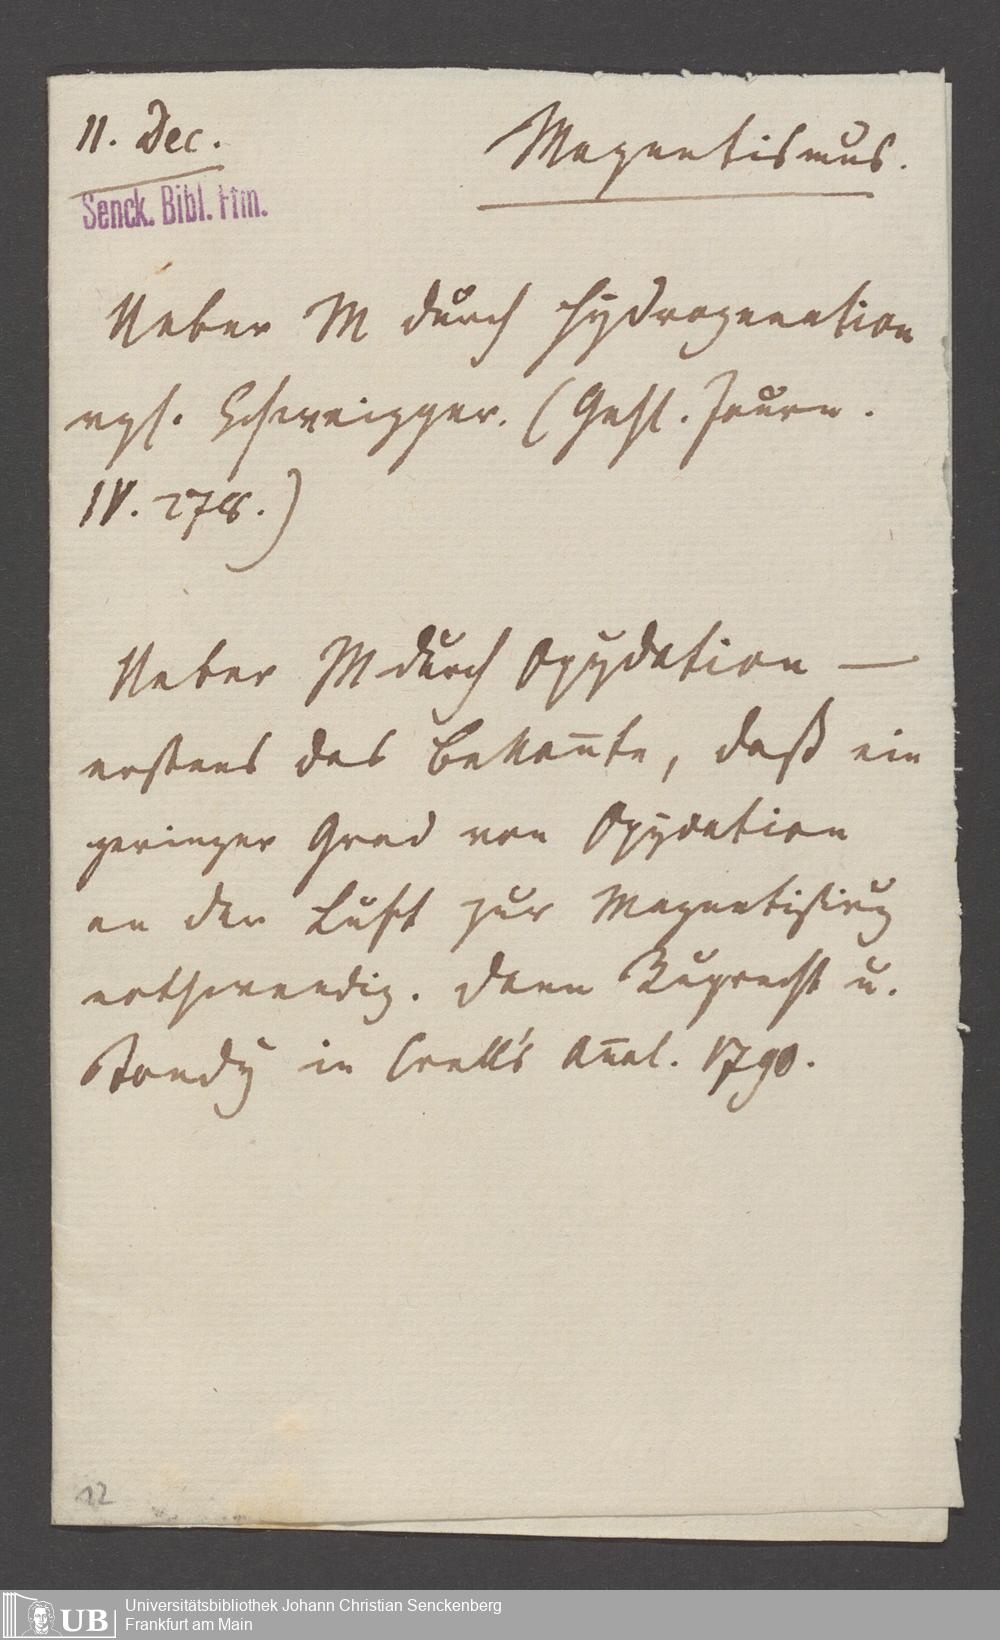 11. Dec.
Magnetismus.
Senck. Bibl. Ffm.
Ueber M durch Hydrogenation
vgl. Schweigger. (Gehl. Journ.
IV. 278.)
Ueber M durch Oxydation —
erstens das Bekan̅te, daß ein
geringer Grad von Oxydation
an der Luft zur Magnetisirug
nothwendig. Dann Ruprecht u.
Tondy in Crell's An̅al. 1790.
12
UB
Universitätsbibliothek Johann Christian Senckenberg
Frankfurt am Main